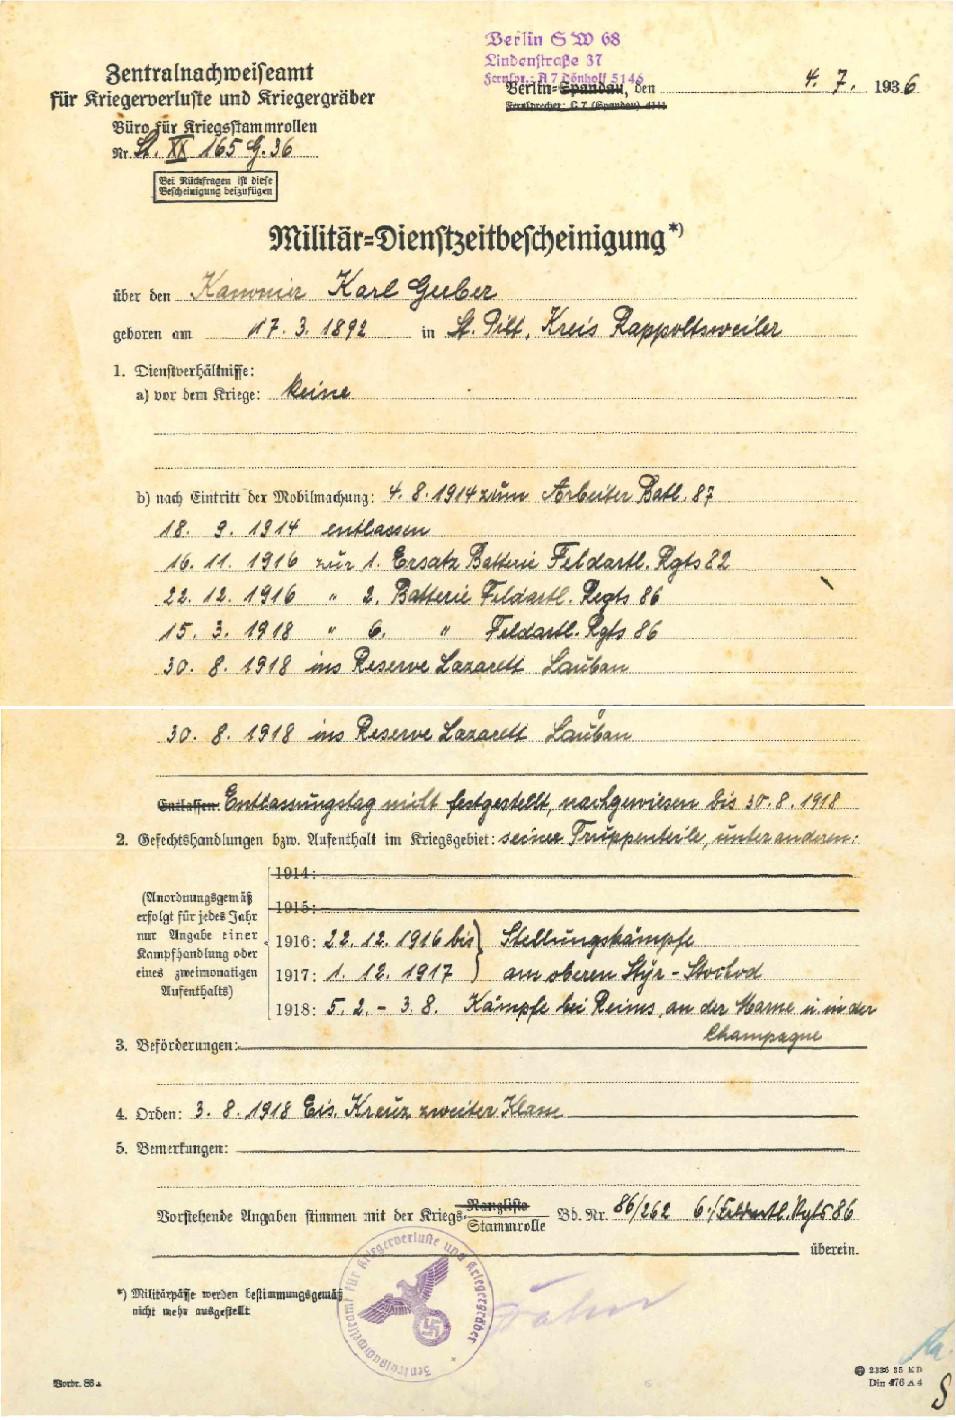 Zentralnachweiseamt
für Kriegerverluste und Kriegergräber
Büro für Kriegsstammrollen
Nr. St. XX 165 G. 36
Bei Rückfragen ist diese
Bescheinigung beizufügen
Berlin SW 68
Lindenstraße 37
Fernspr.: A 7 Dönhoff 5146
Berlin-Spandau, den 4. 7. 1936
Militär=Dienstzeitbescheinigung*)
über den Kanonier Karl
geboren am 17. 3. 1892 in St. Pilt, Kreis Rappoltsweiler
1. Dienstverhältnisse:
a) vor dem Kriege: keine
b) nach Eintritt der Mobilmachung: 4. 8. 1914 zum Arbeiter Batl. 87
18. 9. 1914 entlassen
16. 11. 1916 zur 1. Ersatz Batterie Feldartl. Rgts 82
22. 12. 1916 " 2. Batterie Feldartl. Regts 86
15. 3. 1918 " 6. " Feldartl. Rgts 86
30. 8. 1918 ins Reserve Lazarett Lauban
30. 8. 1918 ins Reserve Lazarett Lauban
Entlassen: Entlassungstag nicht festgestellt, nachgewiesen bis 30. 8. 1918
2. Gefechtshandlungen bzw. Aufenthalt im Kriegsgebiet: seiner Truppenteile, unter anderen:
(Anordnungsgemäß
erfolgt für jedes Jahr
nur Angabe einer
Kampfhandlung oder
eines zweimonatigen
Aufenthalts)
1914:
1915:
1916: 22. 12. 1916 bis } Stellungskämpfe
1917: 1. 12. 1917 } am oberen Styr - Stochod
1918: 5. 2. - 3. 8. Kämpfe bei Reims, an der Marne u. in der
Champagne
3. Beförderungen:
4. Orden: 3. 8. 1918 Eis. Kreuz zweiter Klasse
5. Bemerkungen:
Vorstehende Angaben stimmen mit der Kriegs- Rangliste
Stammrolle Bd. Nr. 86/262 6./Feldartl. Rgts 86
überein.
*) Militärpässe werden bestimmungsgemäß
nicht mehr ausgestellt
Zentralnachweiseamt für Kriegerverluste und Kriegergräber
Vordr. 86a
2336 35 KD
Din 476 A 4